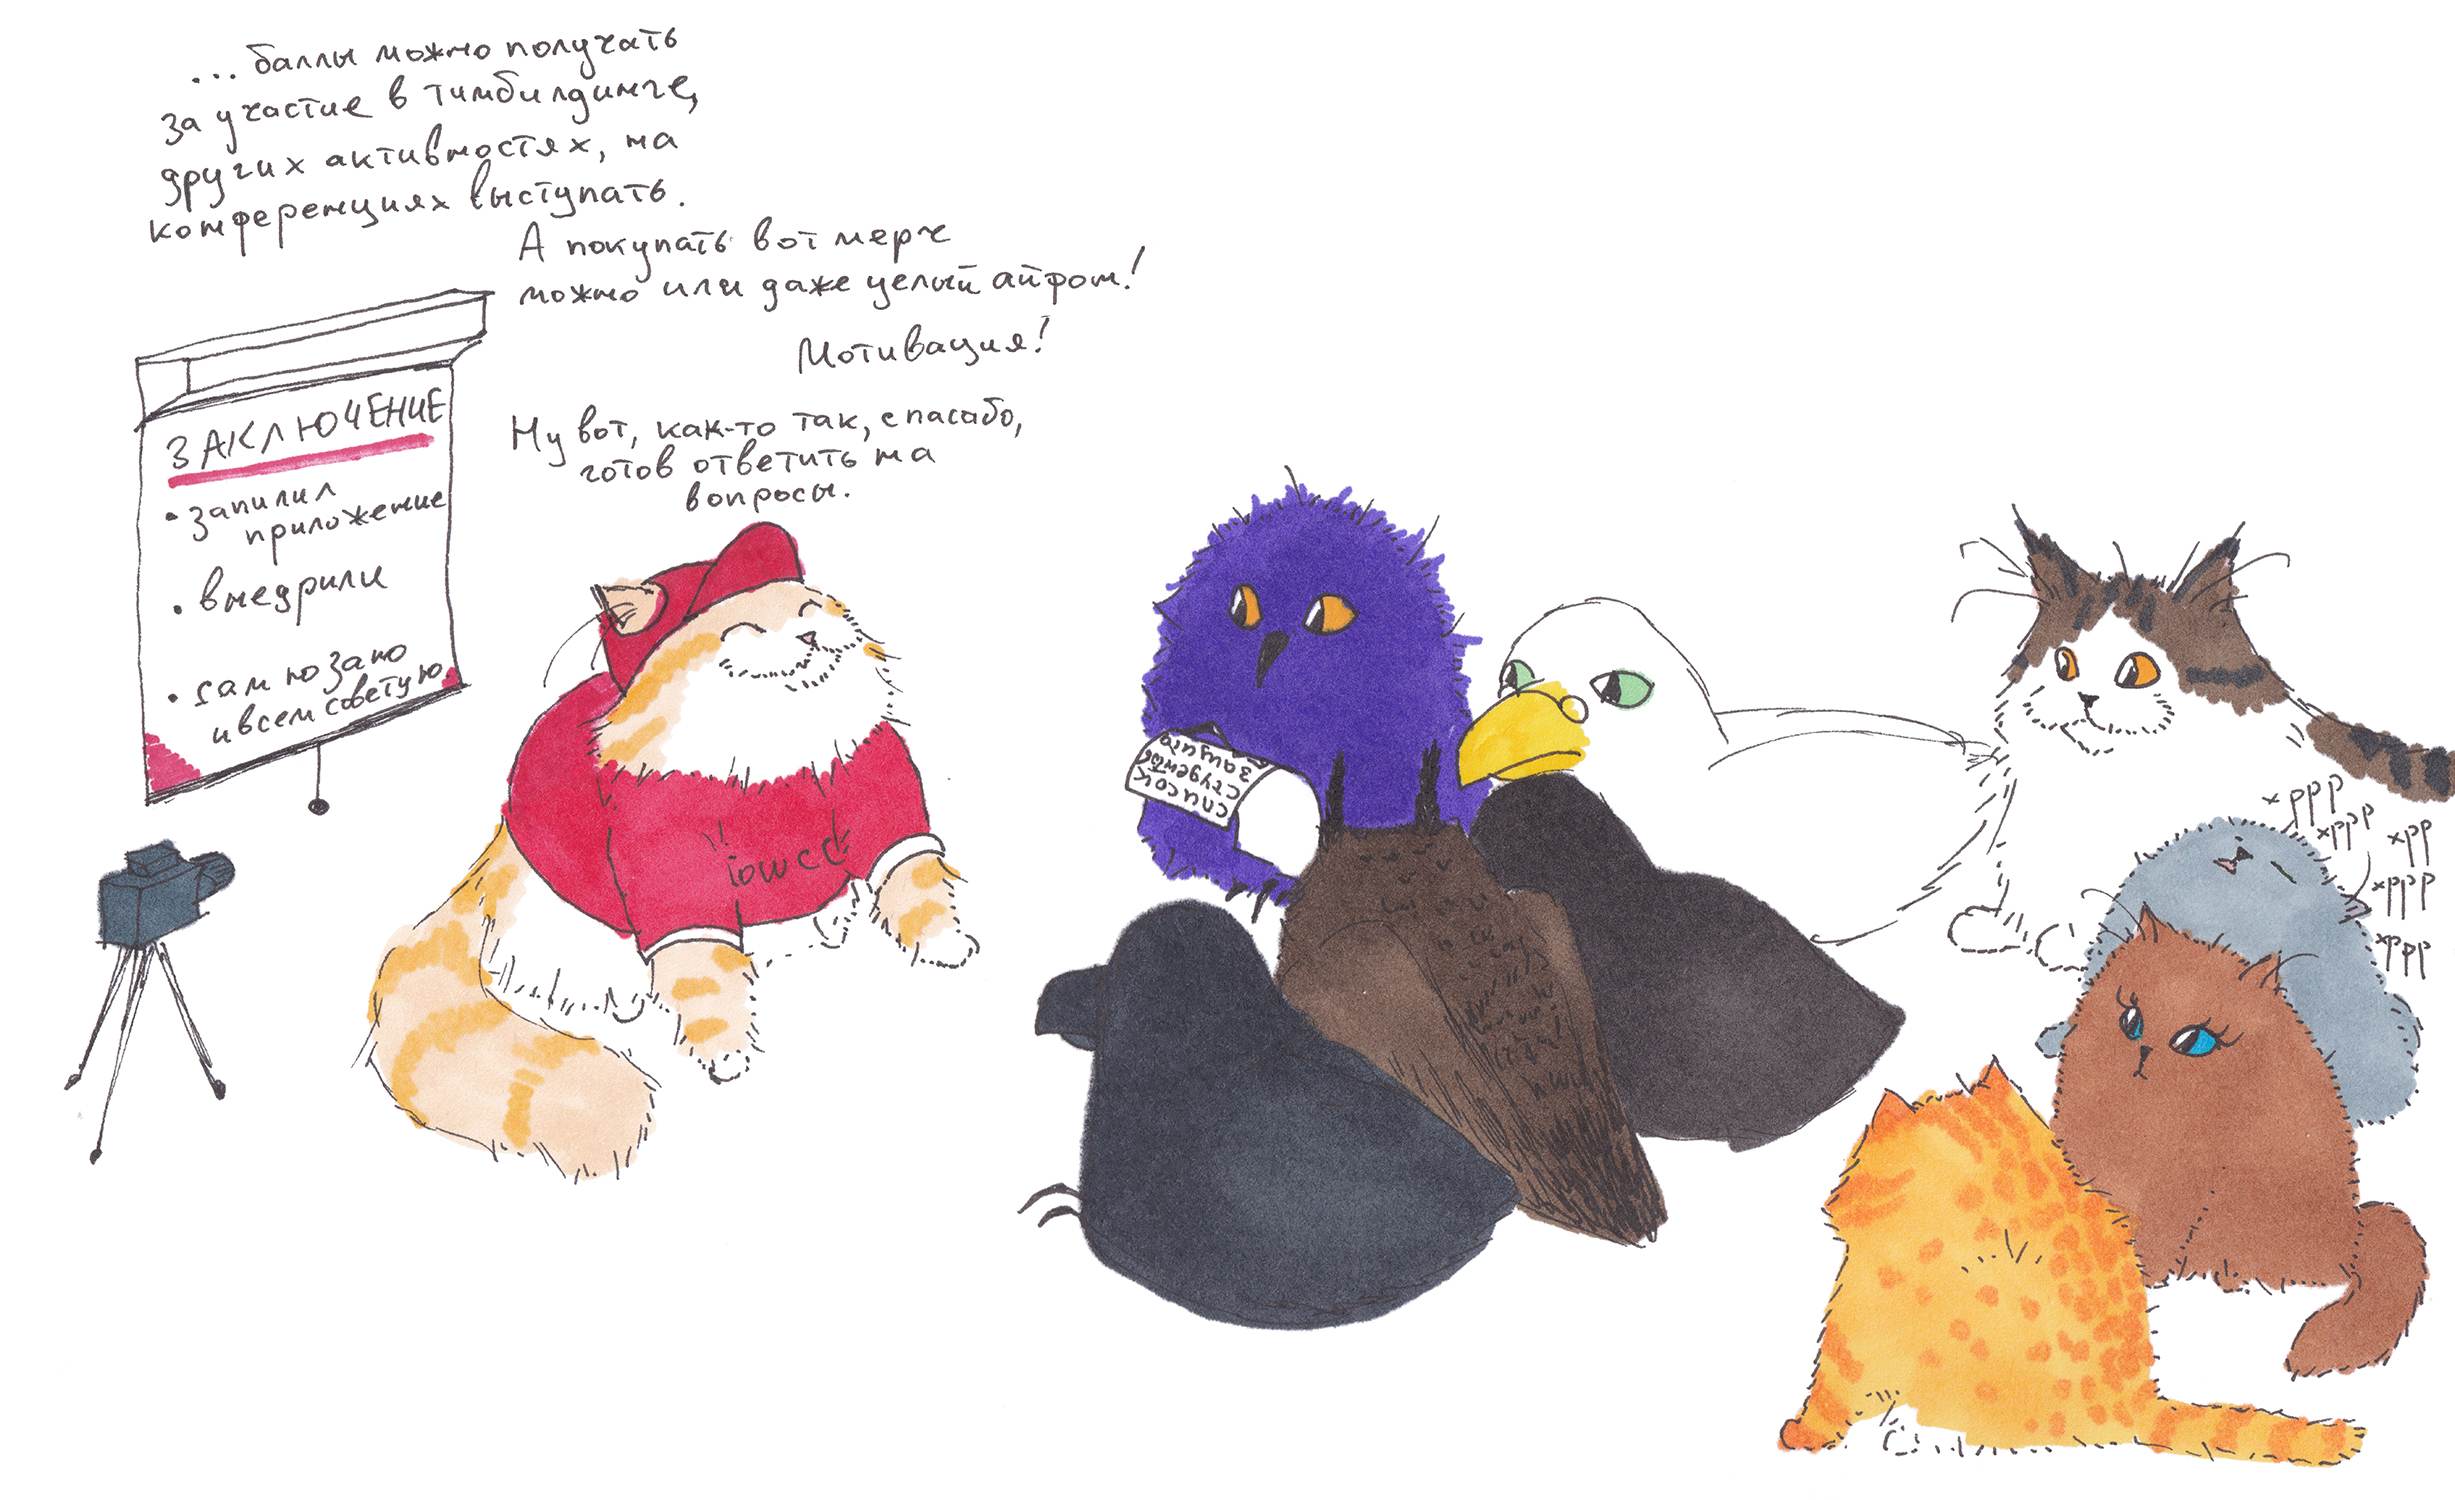 ... баллы можно получать
за участие в тимбилдинге,
других активностях, на
конференциях выступать.
А покупать вот мерч
можно или даже целый айфон!
Мотивация!
Ну вот, как-то так, спасибо,
готов ответить на
вопросы.
ЗАКЛЮЧЕНИЕ
• запилил
приложение
• внедрили
• сам юзаю
и всем советую
список
студентов
защита
хррр
хррр
хрр
хррр
хррр